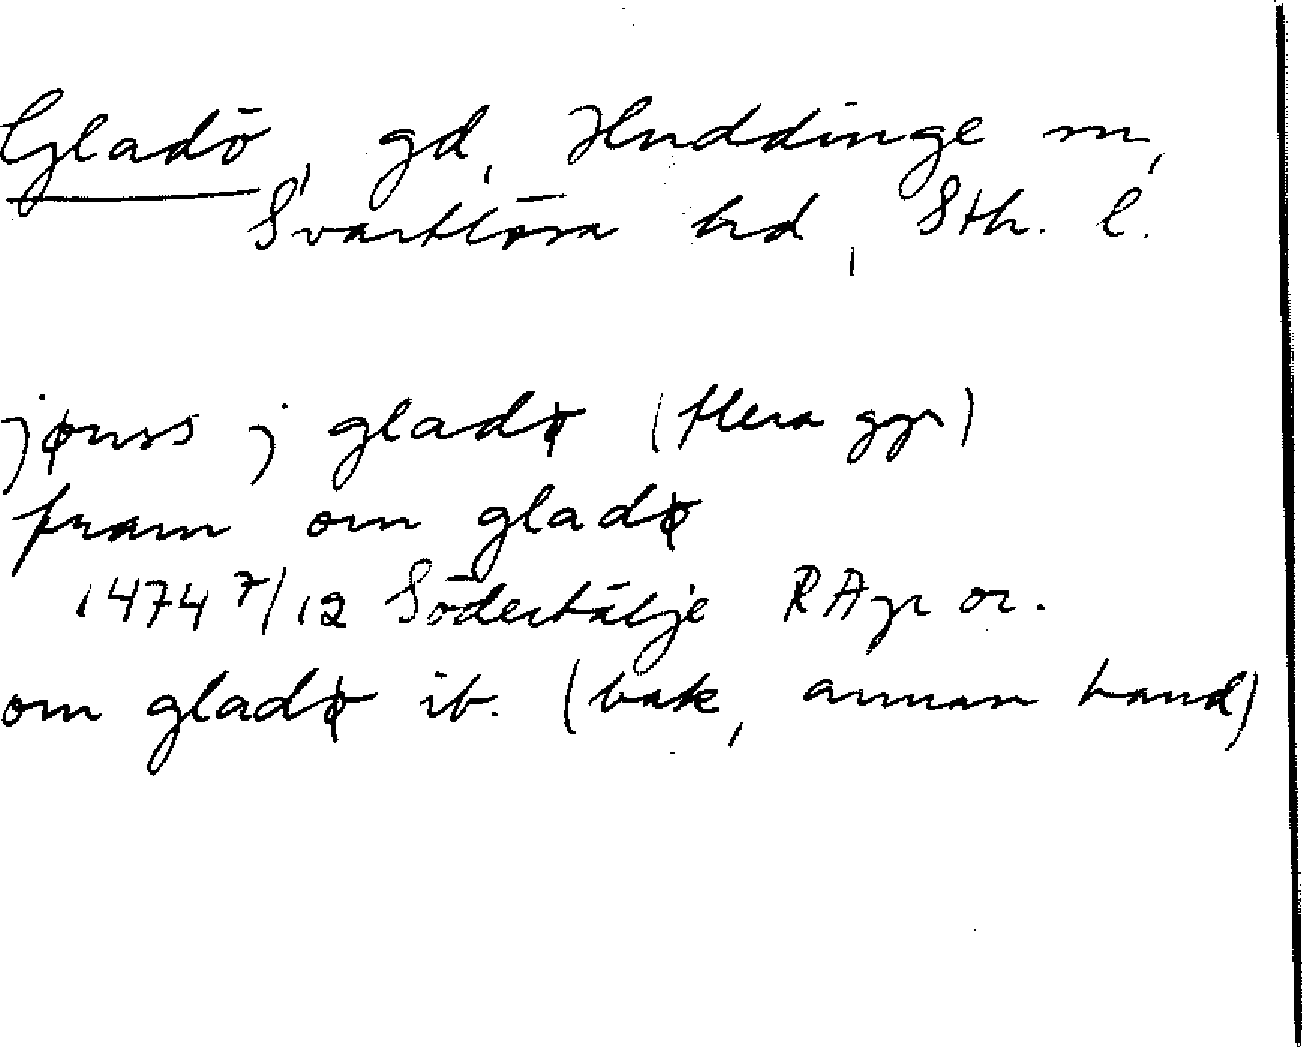 Gladö, gd, Huddinge sn,
Svartlösa hd, Sth. l.
jønss j gladø (flera ggr)
fram om gladø
1474 7/12 Södertälje RAp or.
om gladø ib. (bak, annan hand)